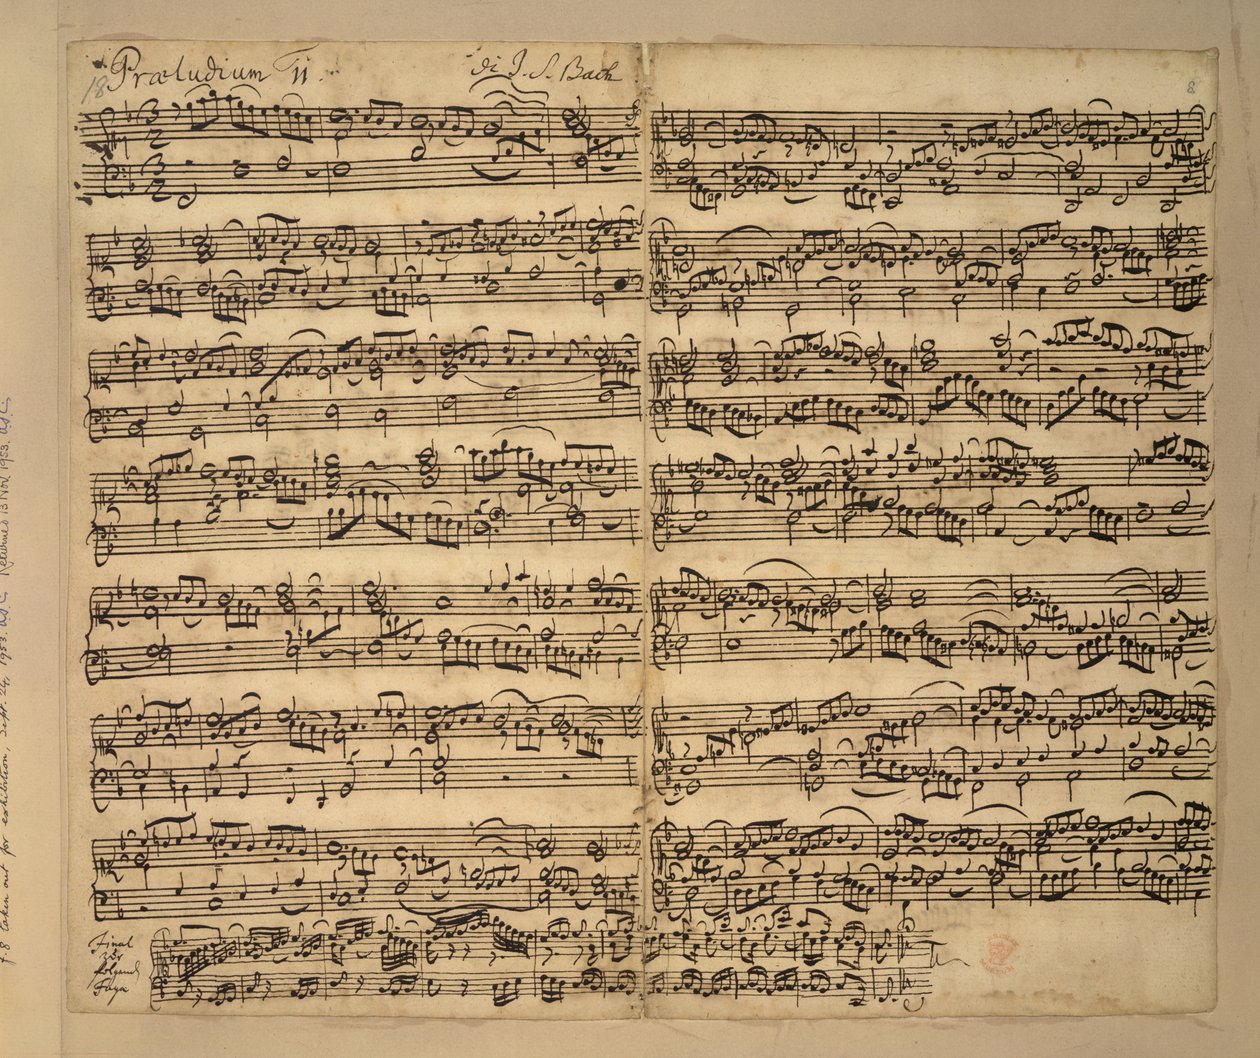 18 Præludium 11. di J. S. Bach
8
Final
zur
folgend
Fuga
f. 8 taken out for exhibition, Sept. 24, 1953. Returned 13 Nov. 1953.